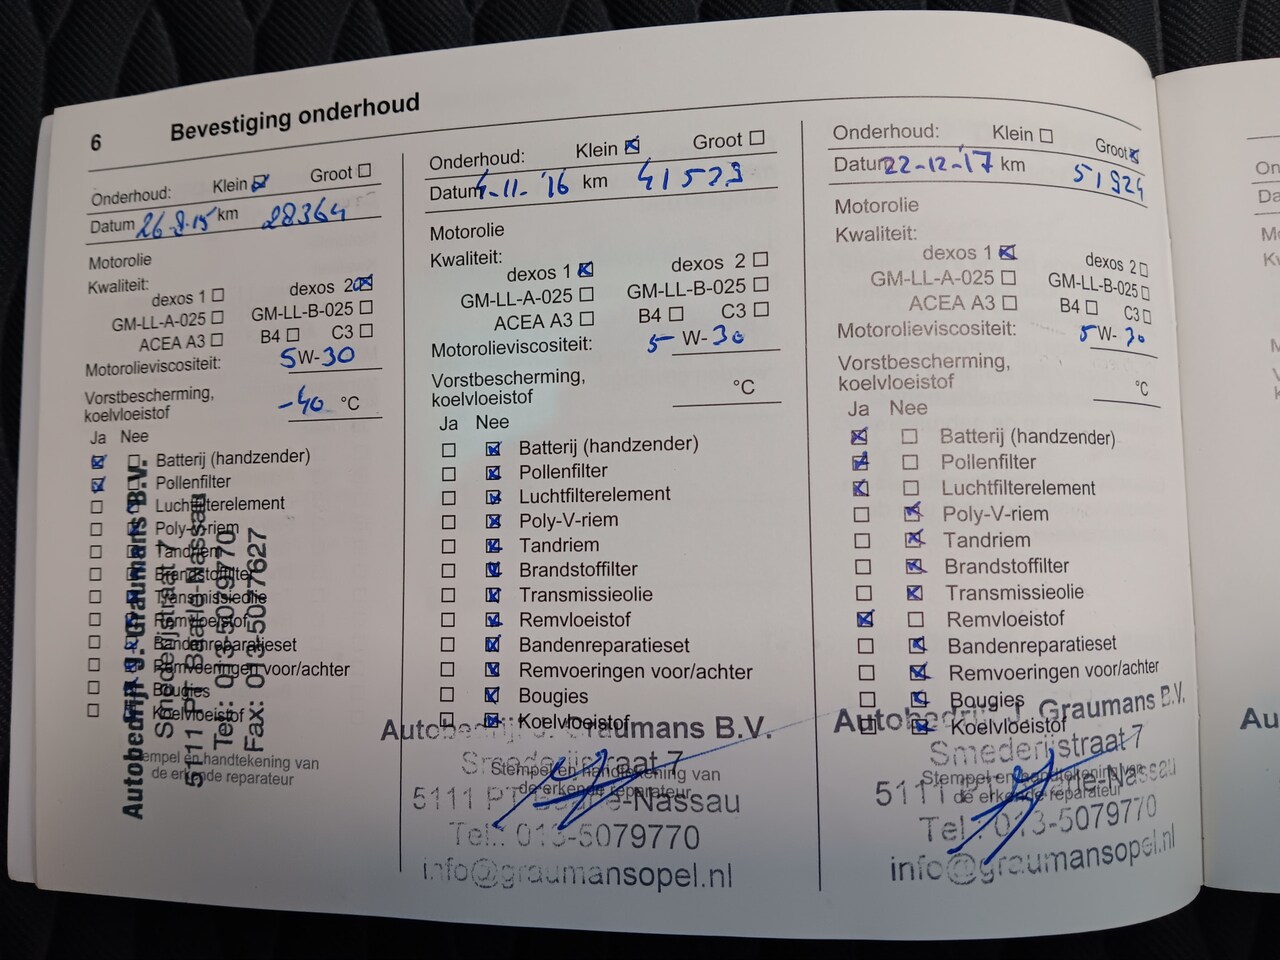 6 Bevestiging onderhoud
Onderhoud: Klein Groot
Datum 26-8-15 km 28364
Motorolie
Kwaliteit:
dexos 1 dexos 2
GM-LL-A-025 GM-LL-B-025
ACEA A3 B4 C3
Motorolieviscositeit: 5 W-30
Vorstbescherming,
koelvloeistof -40 °C
Ja Nee
Batterij (handzender)
Pollenfilter
Luchtfilterelement
Poly-V-riem
Tandriem
Brandstoffilter
Transmissieolie
Remvloeistof
Bandenreparatieset
Remvoeringen voor/achter
Bougies
Koelvloeistof
Stempel en handtekening van
de erkende reparateur
Autobedrijf J. Graumans B.V.
Smederijstraat 7
5111 PT Baarle-Nassau
Tel.: 013-5079770
Fax: 013-5077627
Onderhoud: Klein Groot
Datum 4-11-'16 km 41529
Motorolie
Kwaliteit:
dexos 1 dexos 2
GM-LL-A-025 GM-LL-B-025
ACEA A3 B4 C3
Motorolieviscositeit: 5 W-30
Vorstbescherming,
koelvloeistof °C
Ja Nee
Batterij (handzender)
Pollenfilter
Luchtfilterelement
Poly-V-riem
Tandriem
Brandstoffilter
Transmissieolie
Remvloeistof
Bandenreparatieset
Remvoeringen voor/achter
Bougies
Koelvloeistof
Stempel en handtekening van
de erkende reparateur
Autobedrijf J. Graumans B.V.
Smederijstraat 7
5111 PT Baarle-Nassau
Tel.: 013-5079770
info@graumansopel.nl
Onderhoud: Klein Groot
Datum 22-12-'17 km 51924
Motorolie
Kwaliteit:
dexos 1 dexos 2
GM-LL-A-025 GM-LL-B-025
ACEA A3 B4 C3
Motorolieviscositeit: 5 W-30
Vorstbescherming,
koelvloeistof °C
Ja Nee
Batterij (handzender)
Pollenfilter
Luchtfilterelement
Poly-V-riem
Tandriem
Brandstoffilter
Transmissieolie
Remvloeistof
Bandenreparatieset
Remvoeringen voor/achter
Bougies
Koelvloeistof
Stempel en handtekening van
de erkende reparateur
Autobedrijf J. Graumans B.V.
Smederijstraat 7
5111 PT Baarle-Nassau
Tel.: 013-5079770
info@graumansopel.nl